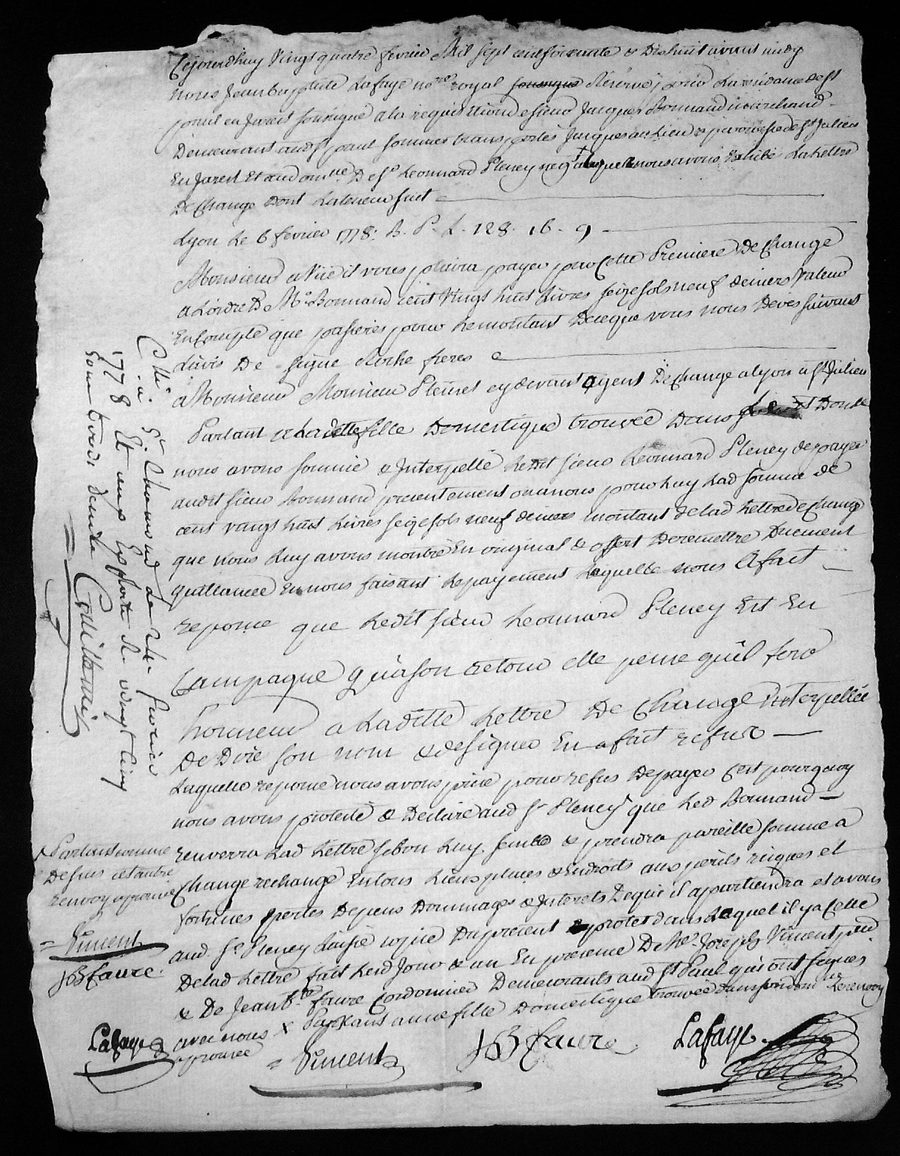 Cejourdhuy Vingt quatre fevrier Mil sept cent soixante & Dixhuit avant midy
nous Jean baptiste Lafaye no.re royal soussigné Réservé pour La résidance de St
paul en Jarest soussigné a la requisition de sieur Jacques Bonnand marchand
Demeurant audit St paul sommes transportés jusques au Lieu & parroisse de St Julien
En Jarest Et au domicile De Sr Leonnard Pleney neg.t auquel nous avons Exhibé La Lettre
De Change dont La teneur suit
Lyon Le 6 fevrier 1778. B. P. L. 128. 16. 9
Monsieur a Vüe il vous plaira payer par Cette Premiere De Change
a Lordre De Mr Bonnand cent Vingt huit Livres seize sols neuf deniers Valeur
En Compte que passeres pour Le montant De ce que vous nous Devés suivant
Lavis De signé Roche freres
a Monsieur Monsieur Pleney cy devant agent De Change a Lyon a St Julien
Parlant a Ladite fille Domestique trouvée Dans Dont
nous avons sommé & Interpellé Ledit sieur Leonnard Pleney de payer
audit sieur Bonnand presentement ou a nous pour Luy Lad. somme de
cent vingt huit Livres seize sols neuf deniers montant de lad. Lettre de Change
que nous Luy avons montré En original & offert De remettre Duement
quittancée En nous faisant Le payement Laquelle nous a fait
reponse que Ledit sieur Leonnard Pleney Est En
Campagne qua son retour elle pense quil fera
honneur a Laditte Lettre De Change Interpellée
De Dire son nom & de signer En a fait refus
Laquelle reponse nous avons prise pour refus De payer C'est pourquoy
nous avons protesté & Declaré aud. Sr Pleney que Led. Bonnand
renverra Lad. Lettre si bon Luy semble & prendra pareille somme a
Change rechange En tous Lieux places & Endroits aux perils risques et
fortunes pertes Depens Dommages & Interets De qui il appartiendra et avons
aud. Sr Pleney Laissé copie Du present protet dans Laquel il y a Celle
De lad. Lettre fait Led. Jour & an En presence De Mr Joseph Piment
& De Jean B.te faure Cordonnier Demeurants aud. St Paul qui ont signés
avec nous x Parlant a une fille Domestique trouvée Dans Le renvoy
aprouvé
Piment
JB faure
Lafaye
C.llé à St Chamond Le 24 fevrier
1778 Et
sous trois deniers
x Parlant comme
Dessus
renvoy aprouvé
Piment
JB faure.
Lafaye